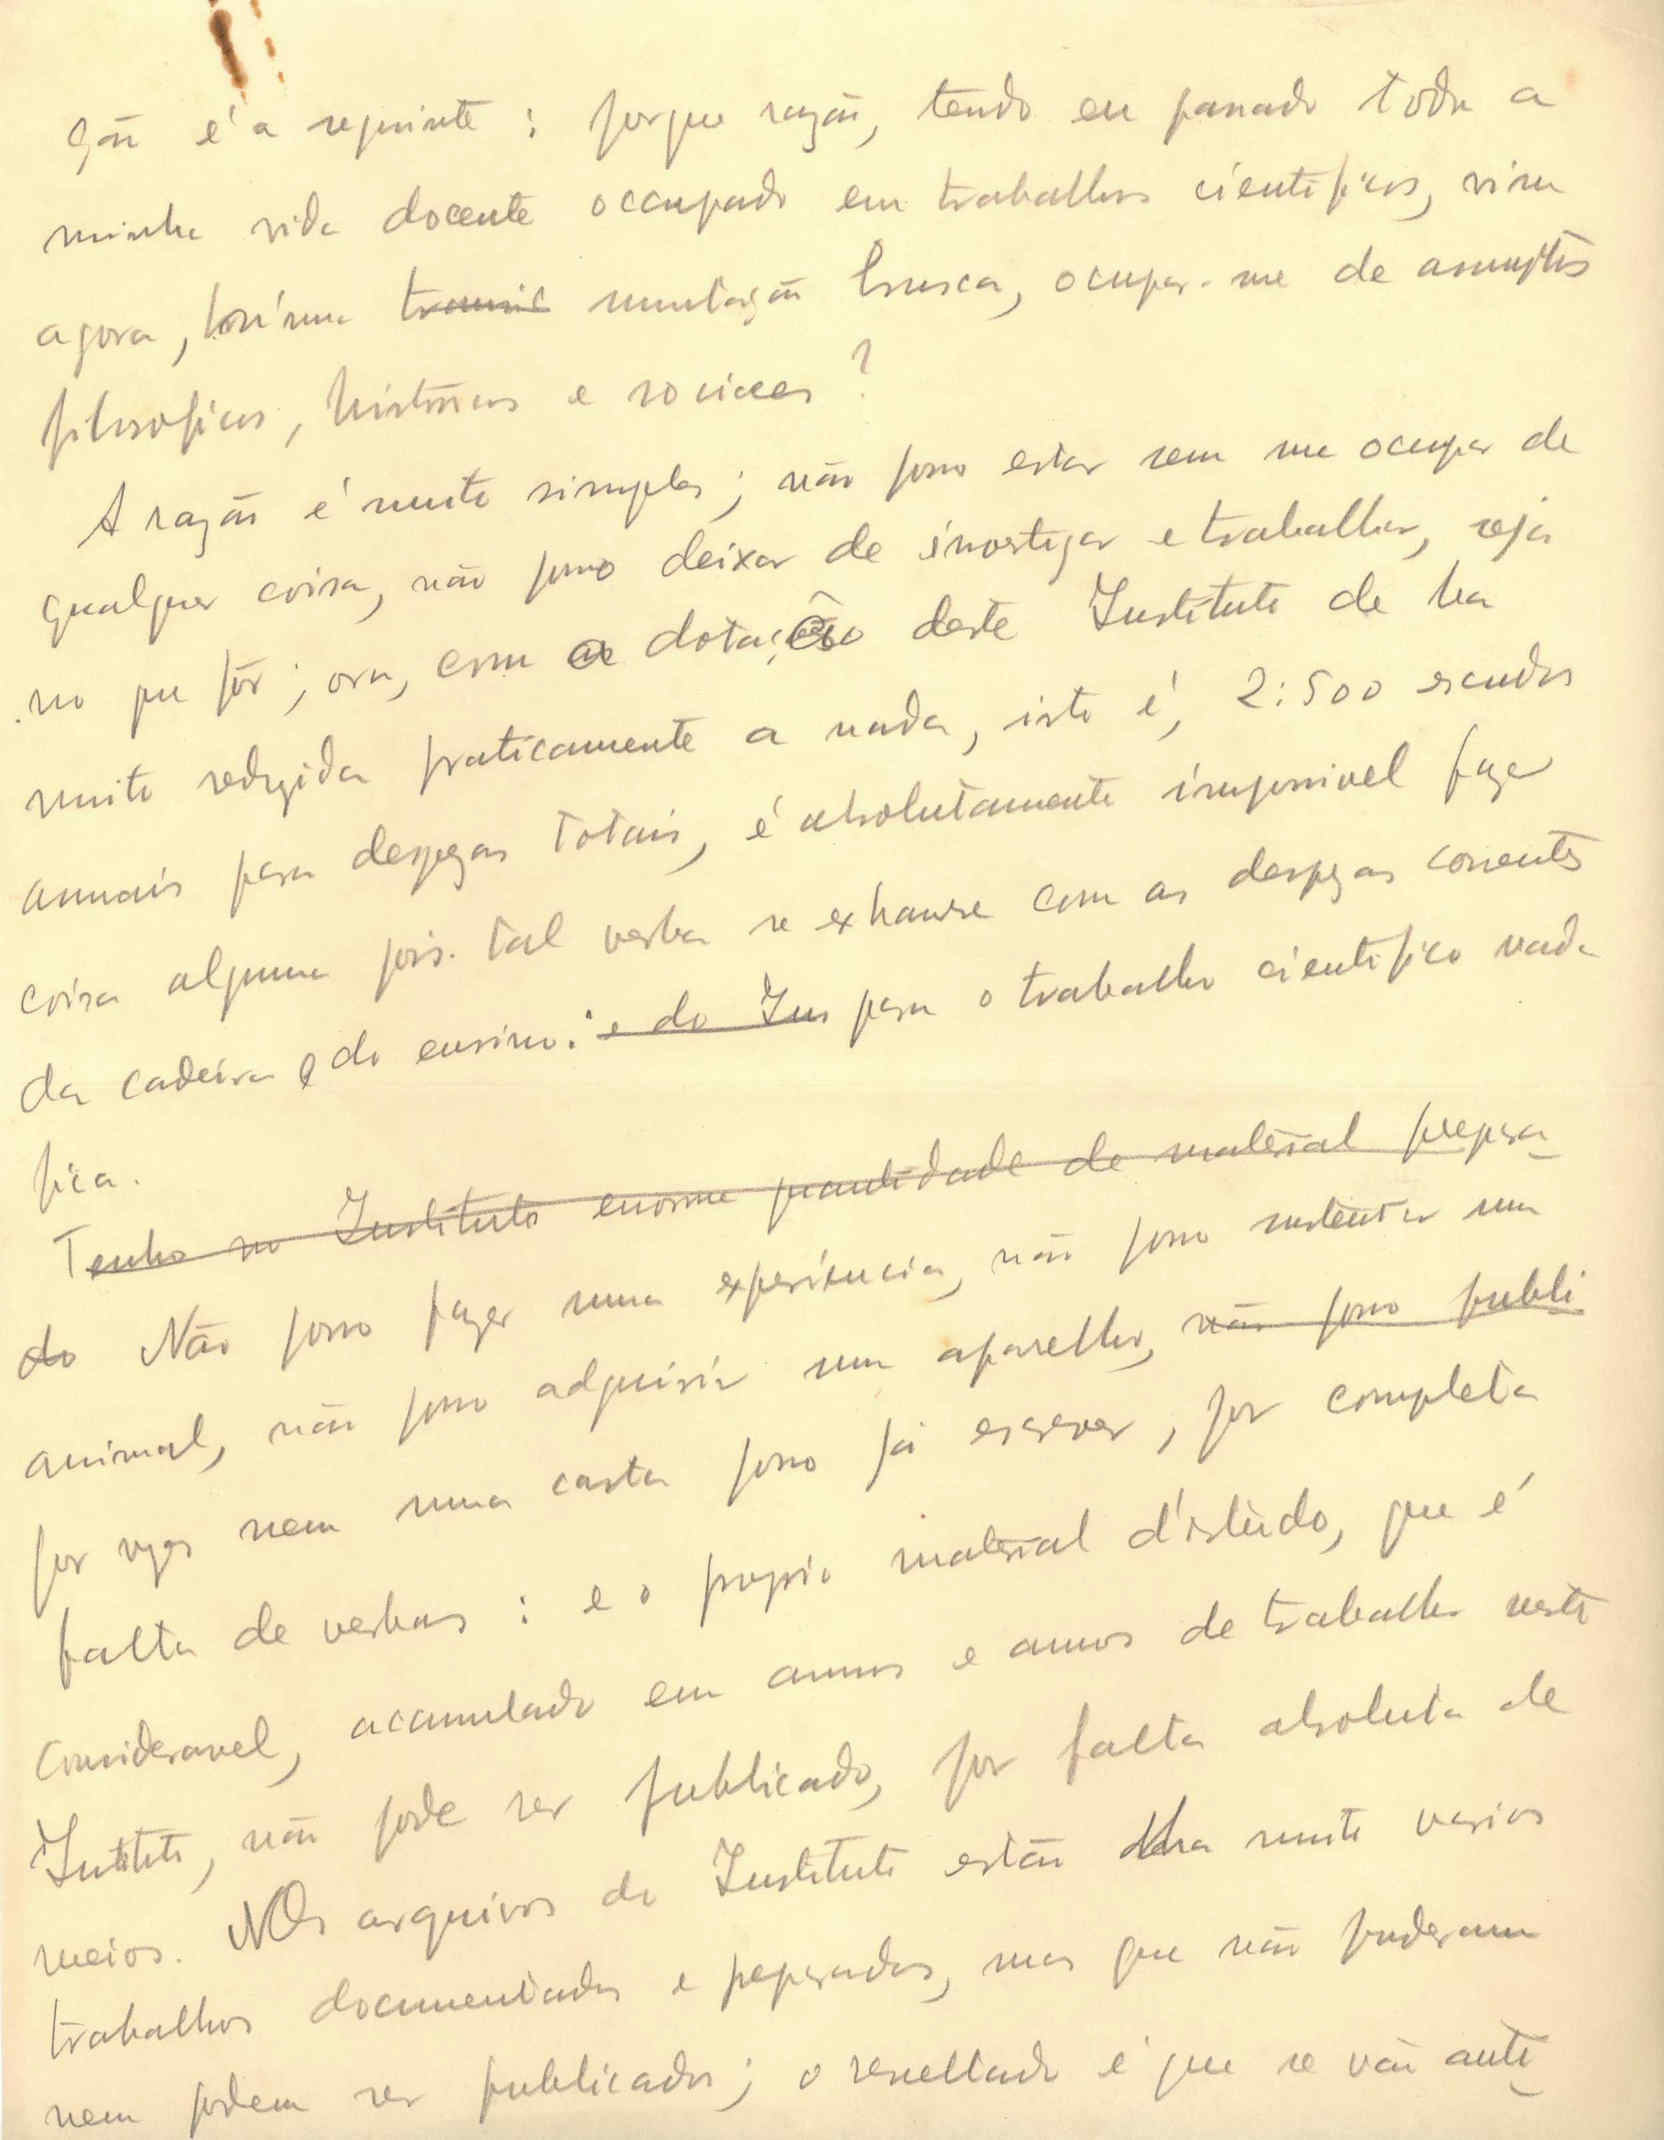 ção é a seguinte : porque razão, tendo eu passado toda a
minha vida docente occupado em trabalhos cientificos, vim
agora, numa transic mutação brusca, ocupar-me de assumptos
filosoficos, historicos e sociaes ?
A razão é muito simples ; não posso estar sem me ocupar de
qualquer coisa, não posso deixar de investigar e trabalhar, seja
no que fôr ; ora, com a dotação deste Instituto de ha
muito redzida praticamente a nada, isto é, 2:500 escudos
annais para despezas totais, é absolutamente impossivel fazer
coisa alguma pois tal verba se exhaure com as despezas correntes
da cadeira e do ensino: e do Ins para o trabalho cientifico nada
fica.
Tenho no Instituto enorme quantidade de material prepara
do Não posso fazer uma experiencia, não posso sustentar um
animal, não posso adquirir um aparelho, não posso publi
por vezes nem uma carta posso já escrever, por completa
falta de verbas : e o proprio material d'estudo, que é
consideravel, acumulado em annos e annos de trabalho neste
Instituto, não pode ser publicado, por falta absoluta de
meios. Nos arquivos do Instituto estão ha muito varios
trabalhos documentados e preparados, mas que não puderam
nem podem ser publicados ; o resultado é que se vão anti